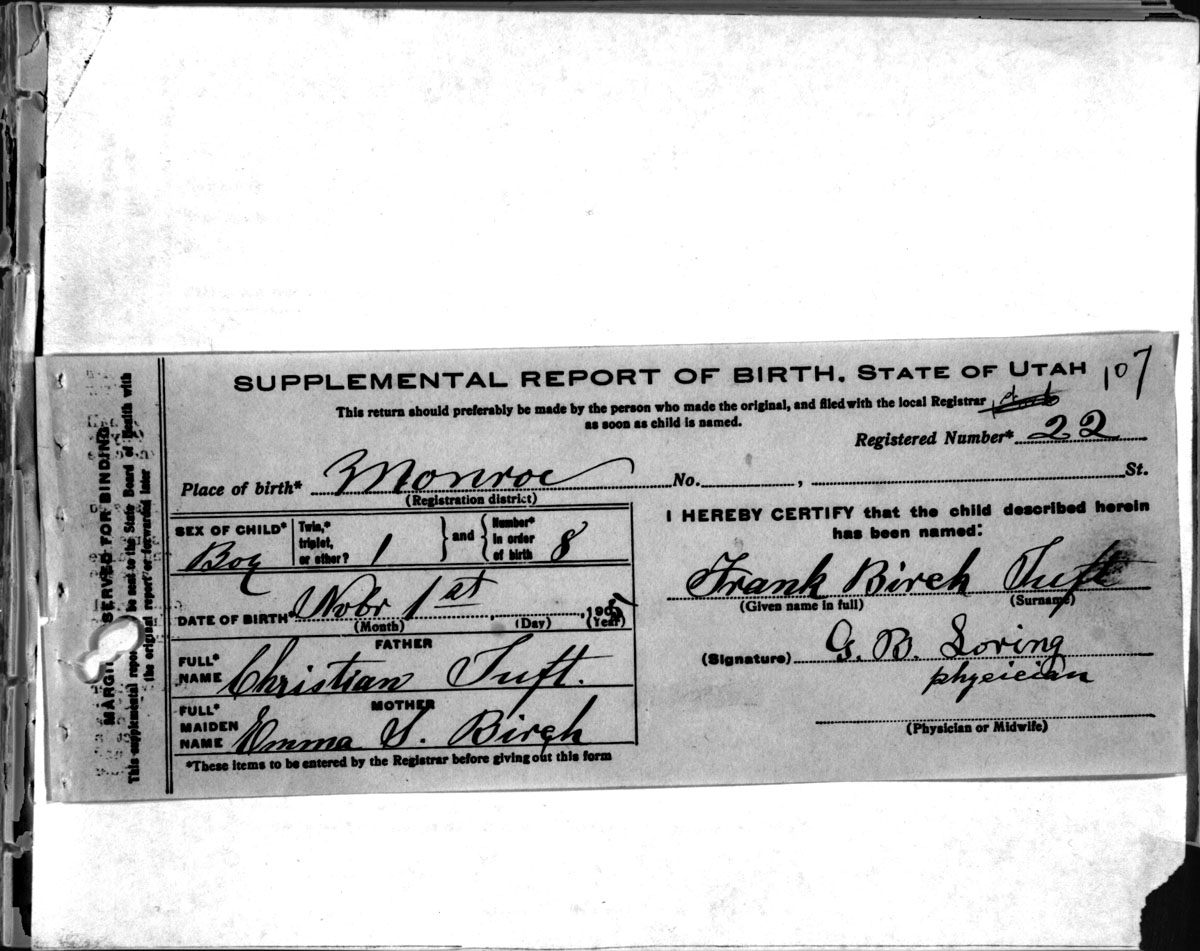 SUPPLEMENTAL REPORT OF BIRTH. STATE OF UTAH 107
This return should preferably be made by the person who made the original, and filed with the local Registrar
as soon as child is named.
Registered Number* 22
Place of birth* Monroe No. , St.
(Registration district)
SEX OF CHILD* Boy
Twin,* triplet, or other? 1
and
Number* in order of birth 8
DATE OF BIRTH* Nobr 1st , 190
(Month) (Day) (Year)
FATHER
FULL* NAME Christian Tuft.
MOTHER
FULL* MAIDEN NAME Emma S. Birch
*These items to be entered by the Registrar before giving out this form
I HEREBY CERTIFY that the child described herein
has been named:
Frank Birch Tuft
(Given name in full) (Surname)
(Signature) G. B. Loring
physician
(Physician or Midwife)
MARGIN SERVED FOR BINDING
This supplemental report be sent to the State Board of Health with
the original report or forwarded later